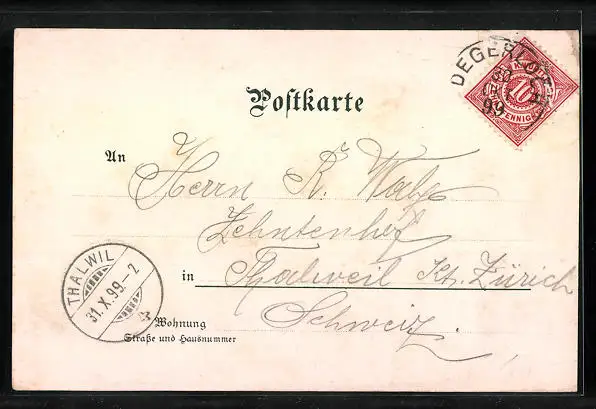 DEGERLOCH
99
10
PFENNIG
Postkarte
An
Herrn R.
Zehntenhof
in Thalweil Kt. Zürich
Schweiz.
THALWIL
31.X.99.-2
Wohnung
Straße und Hausnummer